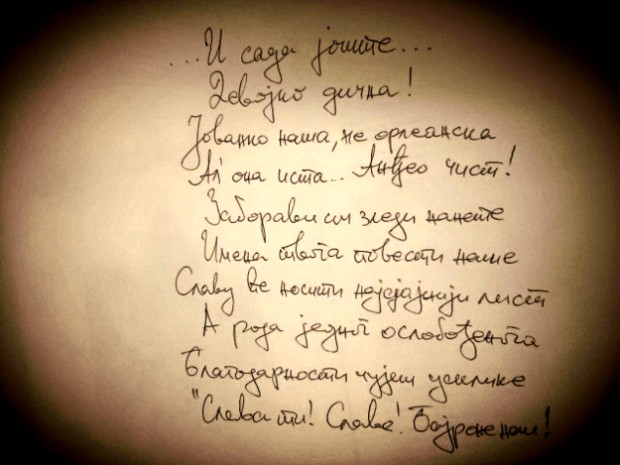 ...И сада јоште...
Девојко дична!
Јованко наша, не орлеанска
Ал' она иста... Анђео чист!
Заборави ли зледи нанете
Имена твога повести наше
Славу ће носити најсјајнији лист
А рода једног ослобођенога
Благодарности чујеш усклике
"Слава ти! Слава! Бајроне наш!